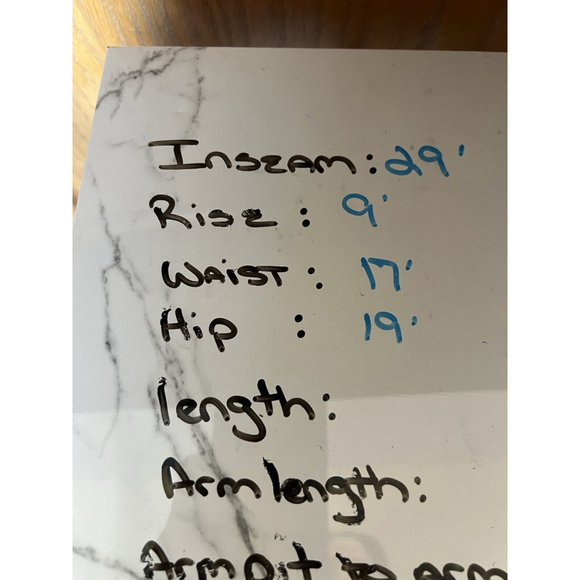 Inseam: 29'
Rise: 9'
WAIST: 17'
Hip : 19'
length:
Arm length:
Armpit to arm